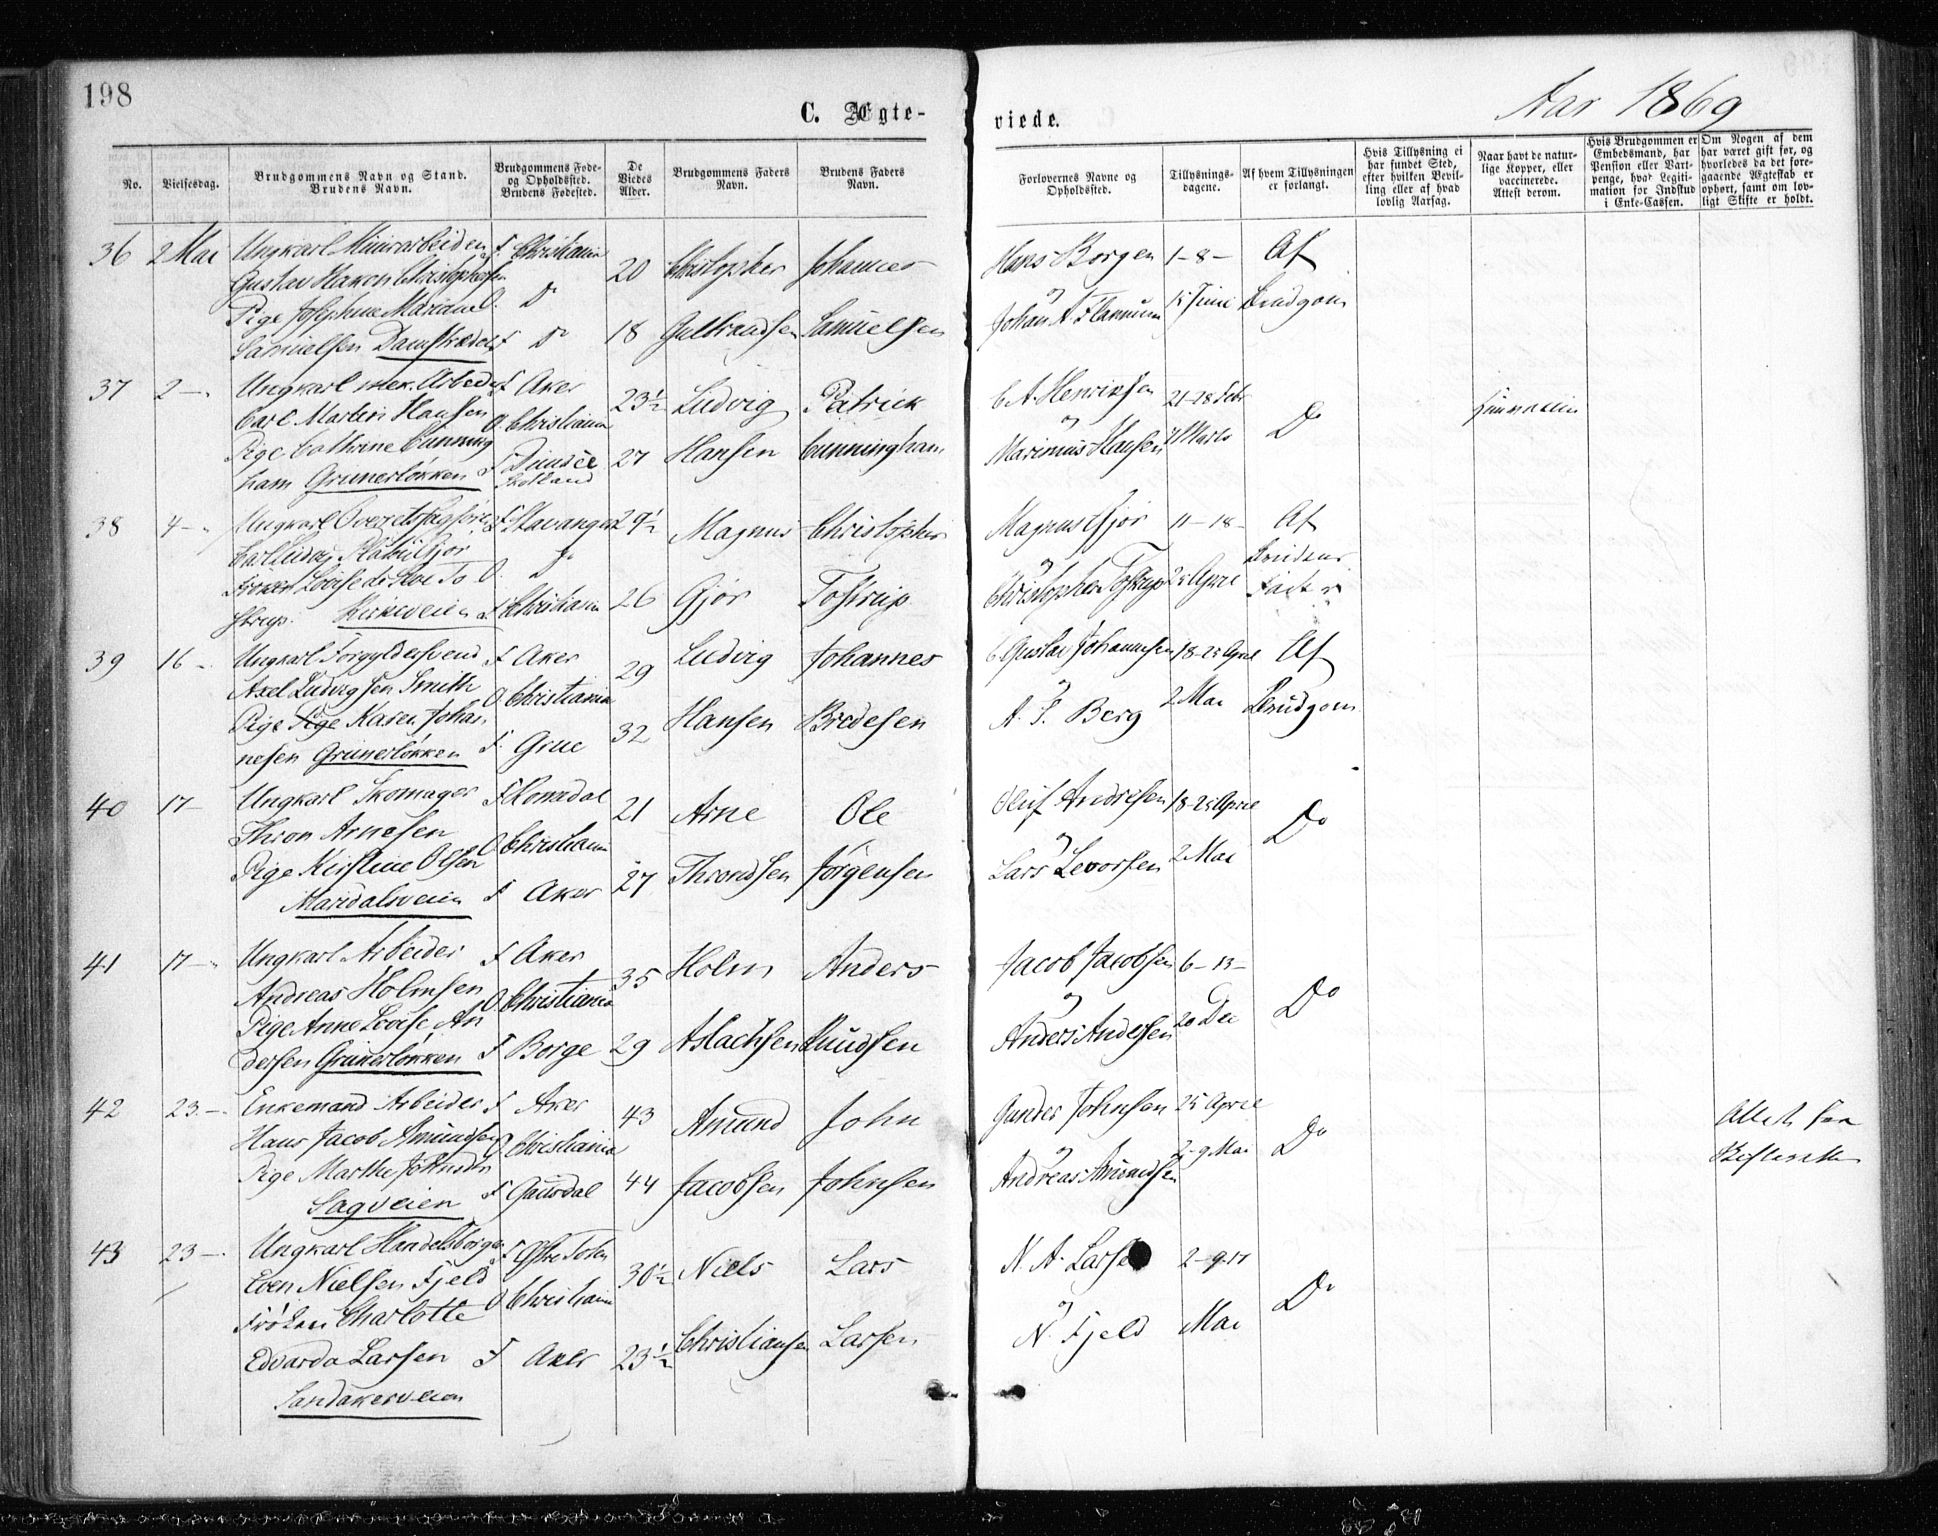 198
C. Ægte-
viede.
Aar 1869
No.
Vielsesdag.
Brudgommens Navn og Stand.
Brudens Navn.
Brudgommens Føde-
og Opholdssted.
Brudens Fødested.
De
Viedes
Alder.
Brudgommens Faders
Navn.
Brudens Faders
Navn.
Forlovernes Navne og
Opholdssted.
Tillysnings-
dagene.
Af hvem Tillysningen
er forlangt.
Hvis Tillysning ei
har fundet Sted,
efter hvilken Bevil-
ling eller af hvad
lovlig Aarsag.
Naar havt de natur-
lige Kopper, eller
vaccinerede.
Attest derom.
Hvis Brudgommen er
Embedsmand, har
Pension eller Vart-
penge, hvad Legiti-
mation for Indskud
i Enke-Cassen.
Om Nogen af dem
har været gift før, og
hvorledes da det fore-
gaaende Ægteskab er
ophørt, samt om lov-
ligt Skifte er holdt.
36 2 Mai Ungkarl F Christiania 20 Christopher Johannes Hans Borgen 1-8- Af
Gustav Hakon Christophersen O. Do og
Pige Josephine Mariane Johan A. 15 Brudgom
Samuelsen F Do 18 Gulbrandsen Samuelsen
37 2 - Ungkarl mek. Arbeider F Aker 23½ Ludvig Patrick C. A. Henriksen 21-28 Febr Do
Carl Martin Hansen O Christiania og
Pige Cathrine Cunning Marinius Hansen 7 Marts
ham Grunerløkken F Dundee Skotland 27 Hansen Cunningham
38 4 - Ungkarl Overretssagfører F Stavanger 29½ Magnus Christopher Magnus Gjør 11-18- Af
Carl Ludvig Gjør O. Do og Brudens
Frøken Lovise To Christopher Tostrup 25 April Fader
strup. Kirkeveien F Christiania 26 Gjør Tostrup
39 16 - Ungkarl Forgyldersvend F Aker 29 Ludvig Johannes C. Gustav Johannesen 18-25 April Af
Axel Ludvigsen Smith O Christiania og
Pige Pige Karen Johan A. F. Berg 2 Mai Brudgom
nesen Grunerløkken F. Grue 32 Hansen Bredesen
40 17 - Ungkarl Skomager F Romsdal 21 Arne Ole Oluf Andresen 18-25 April Do
Thron Arnesen O Christiania og
Pige Kirstine Olsen Lars Levorsen 2 Mai
Maridalsveien F Aker 27 Throndsen Jørgensen
41 17 - Ungkarl Arbeider F Aker 35 Holm Anders Jacob Jacobsen 6-13-
Andreas Holmsen O. Christiania og Do
Pige Anne Lovise An Anders Andersen 20 Dec
dersen Grunerløkken F Borge 29 Aslachsen Knudsen
42 23 - Enkemand Arbeider F Aker 43 Amund John Gunder Johnsen 25 April
Hans Jacob Amundsen O Christiania og 2-9 Mai Do
Pige Marthe Johnsdtr Andreas Amundsen
Sagveien F Gausdal 44 Jacobsen Johnsen
Attest fra
Skifteretten
43 23 - Ungkarl Handelsborger F Østre Toten 30½ Niels Lars N. A. Larsen 2-9-17
Even Nielsen Fjeld O Christiania og Do
Frøken Charlotte N. Fjeld Mai
Edvarda Larsen F Aker 23½ Christiansen Larsen
Sandakerveien